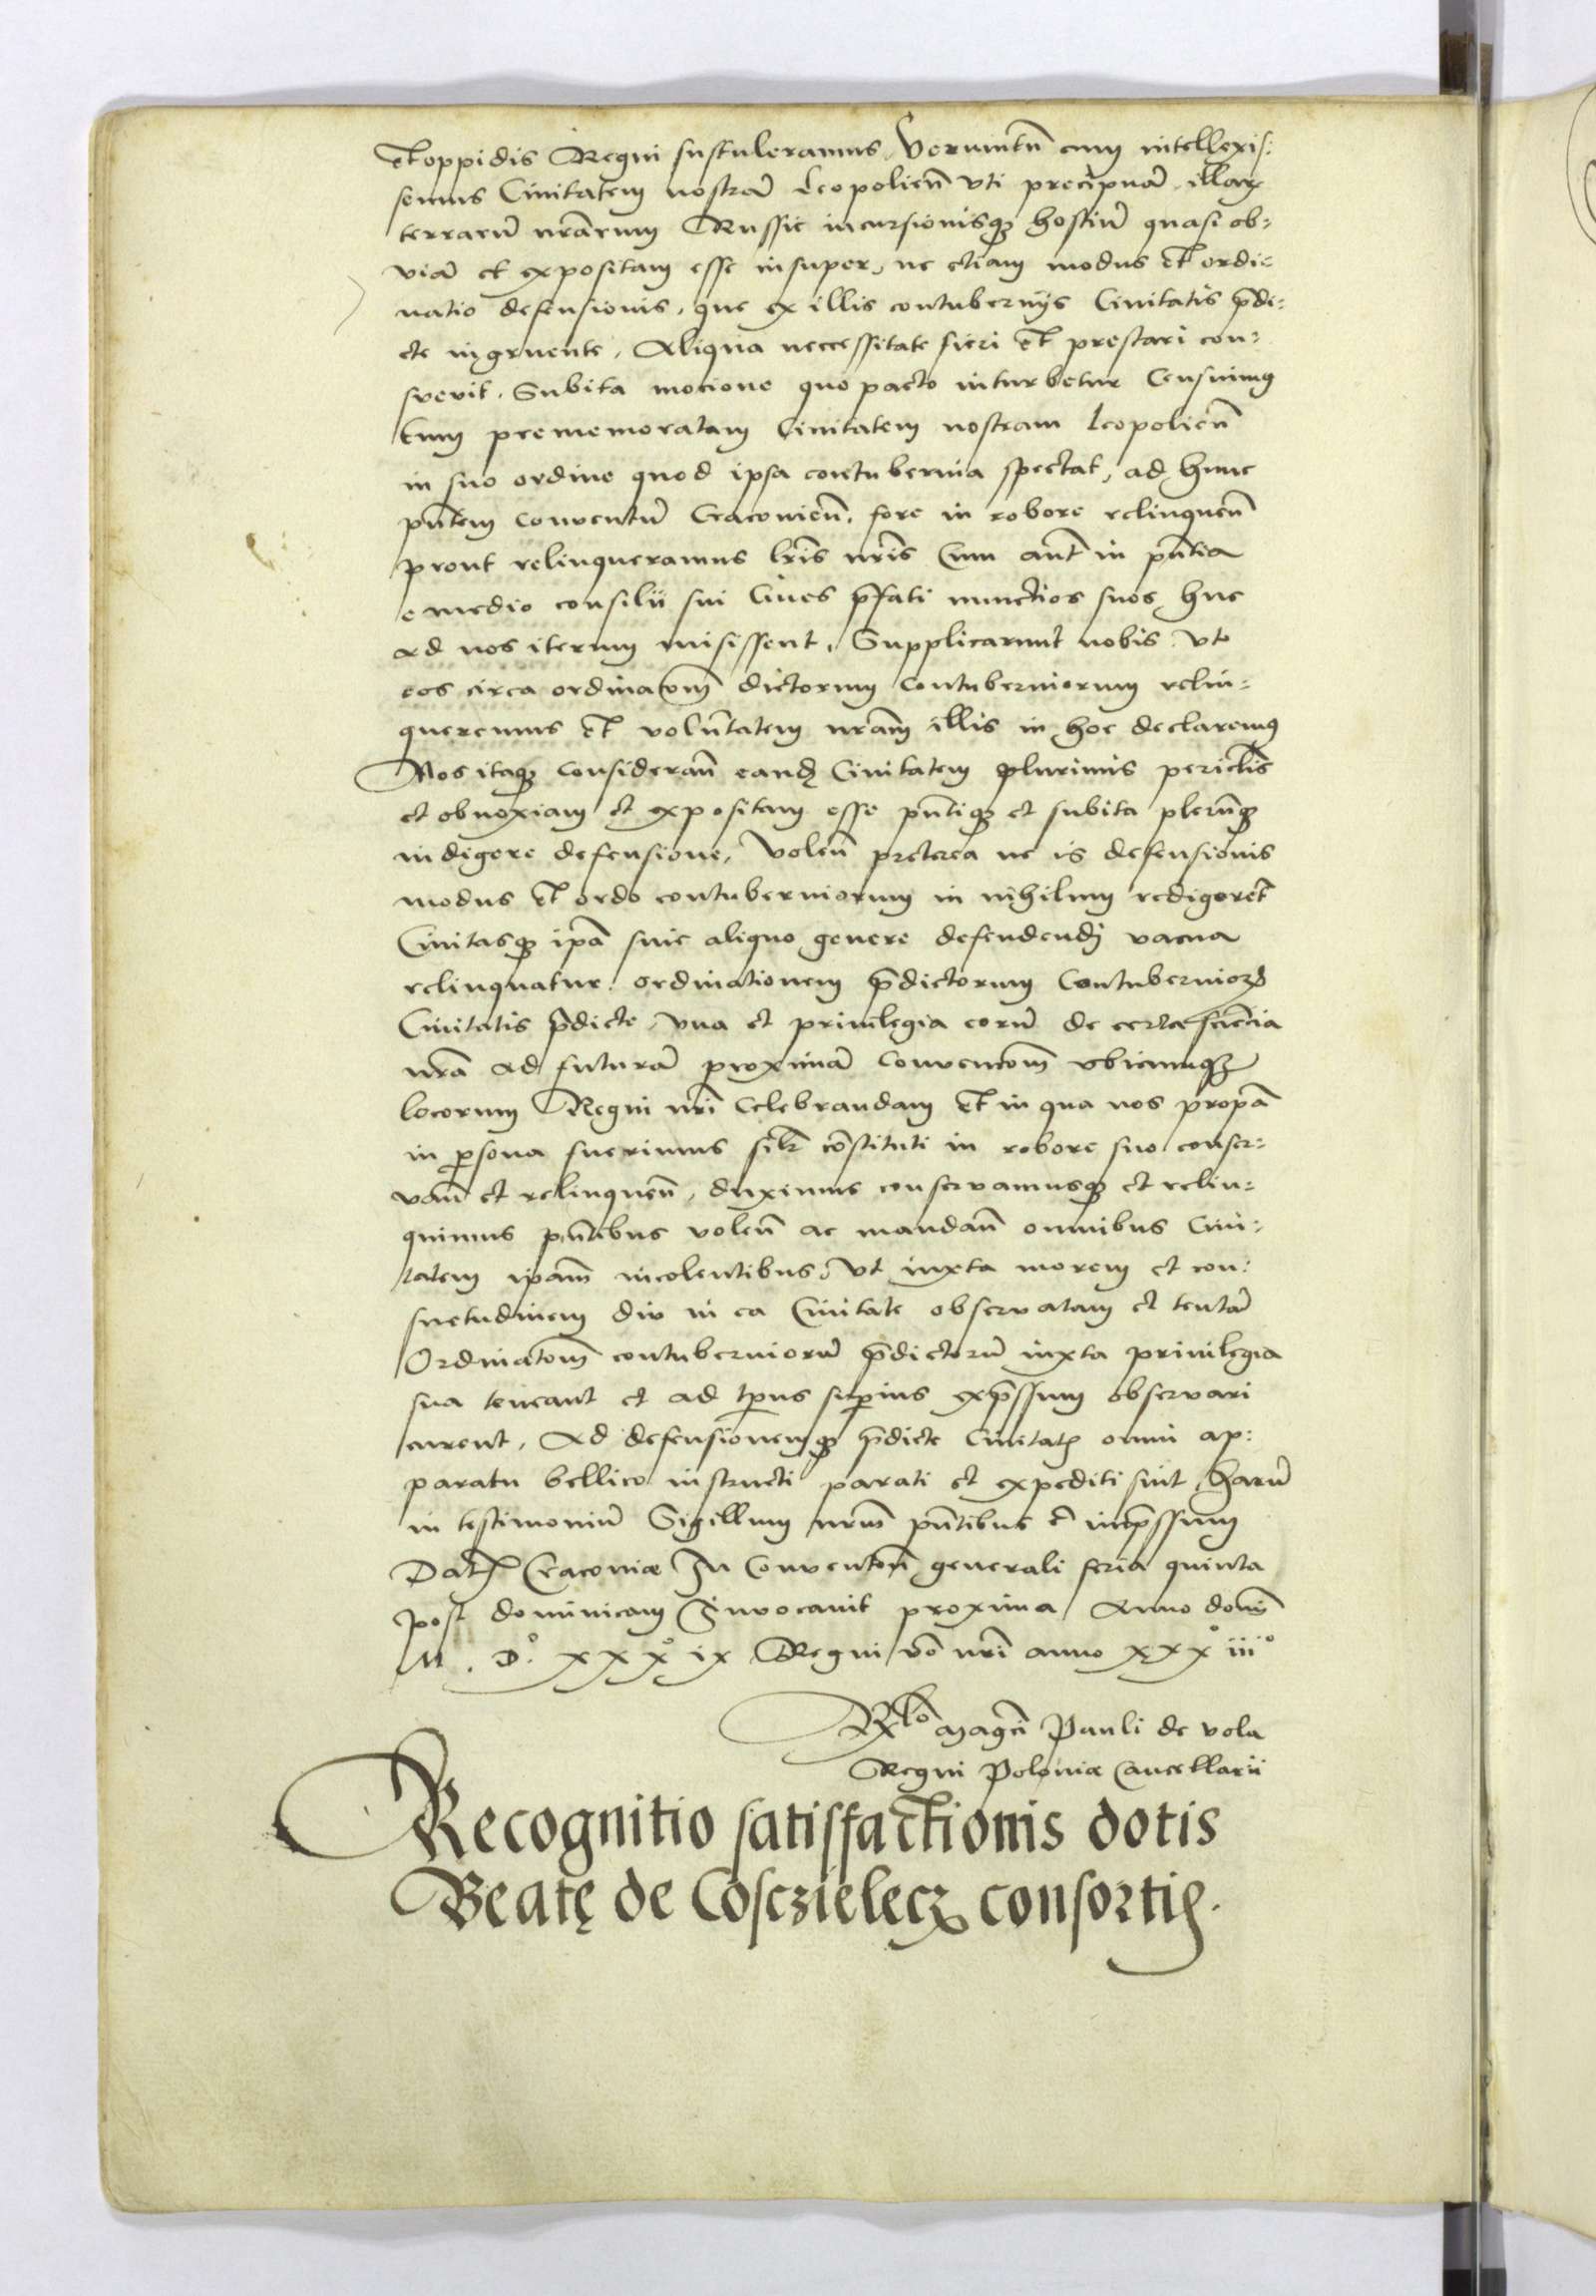 Et oppidis Regni sustuleramus, Verumtn̄ cum intellexis:
semus Ciuitatem nostrā Leopolien̄ vti precipuā illarꝝ
terrarū nr̄arum Russie incursionisqꝫ hostiū quasi ob:
viā et expositam esse insuper, ne etiam modus Et ordi:
natio defensionis, que ex illis contubernijs Ciuitatis p̄di:
cte ingruente, Aliqua neccessitate fieri Et prestari con:
sveuit. Subita mocione quo pacto inturbetur Censuimꝰ
tum prememoratam Ciuitatem nostram Leopolien̄
in suo ordine quod ipsa contubernia spectat, ad hunc
pn̄tem conuentū Cracouien̄. fore in robore relinquen̄
prout relinqueramus lr̄is nr̄is Cum aūt in pn̄tia
e medio consilii sui Ciues p̄fati nunctios suos huc
ad nos iterum misissent, Supplicarunt nobis vt
eos circa ordinacōm̄ dictorum contuberniorum relin:
queremus Et volūntatem nr̄am illis in hoc declaremꝰ
Nos itaqꝫ consideran̄ eandꝫ Ciuitatem plurimis pericl̄is
et obnoxiam et expositam esse pn̄tiqꝫ et subita plerūqꝫ
indigere defensione, Volen̄ preterea ne is defensionis
modus Et ordo contuberniorum in nihilum redigeret̄
Ciuitasqꝫ ip̄a sine aliquo genere defendendj vacua
relinquatur, ordinationem p̄dictorum Contuberniorꝝ
Ciuitatis p̄dicte, vna et priuilegia eorū de certa sciēcia
nr̄a ad futurā proximā conuencōm̄ vbicumqꝫ
locorum Regni nr̄i Celebrandam Et in qua nos prop̄a
in p̄sona fuerimus sil̄r cōstituti in robore suo conser:
van̄ et relinquen̄, duximus conservamusqꝫ et relin:
quimus pn̄tibus volen̄ ac mandan̄ omnibus Ciui:
tatem ip̄am incolentibus, Vt iuxta morem et con:
suetudinem diu in ea Ciuitate observatam et tentā
Ordinatōm̄ contuberniorū p̄dictorū iuxta priuilegia
sua teneant et ad tp̄us sup̄ius exp̄ssum observari
curent, Ad defensionemqꝫ p̄dicte Ciuitatꝭ omni ap:
paratu bellico instructi parati et expediti sint, harū
in testimoniū Sigillum nr̄m pn̄tibus ē imp̄ssum
Datꝭ Cracouiæ In Conuentōn̄ generali feria quinta
post dominicam Inuocauit proxima Anno domī
M. D.° xxx° ix Regni vō nr̄i anno xxx° iii°
Rl̄o magcī Pauli de vola
Regni Poloniæ Cancellarii
Recognitio satisfactionis dotis
Beatę de Cosczielecz consortis.